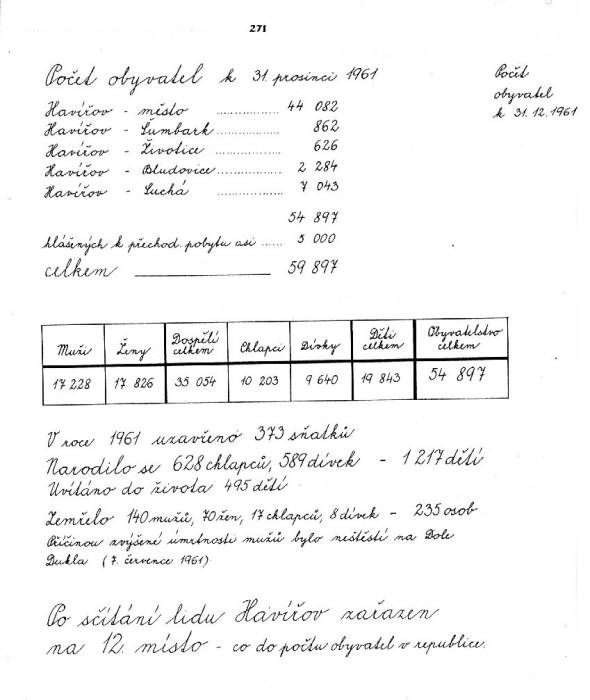 271
Počet obyvatel k 31. prosinci 1961
Počet
obyvatel
k 31.12.1961
Havířov - město .................. 44 082
Havířov - Šumbark ............... 862
Havířov - Životice ................ 626
Havířov - Bludovice ............... 2 284
Havířov - Suchá .................. 7 043
54 897
hlášených k přechod. pobytu asi ...... 5 000
celkem ______________ 59 897
Muži Ženy Dospělí celkem Chlapci Dívky Děti celkem Obyvatelstvo celkem
17 228 17 826 35 054 10 203 9 640 19 843 54 897
V roce 1961 uzavřeno 373 sňatků
Narodilo se 628 chlapců, 589 dívek - 1 217 dětí
Uvítáno do života 495 dětí
Zemřelo 140 mužů, 70 žen, 17 chlapců, 8 dívek - 235 osob
Příčinou zvýšené úmrtnosti mužů bylo neštěstí na Dole
Dukla (7. července 1961)
Po sčítání lidu Havířov zařazen
na 12. místo - co do počtu obyvatel v republice.